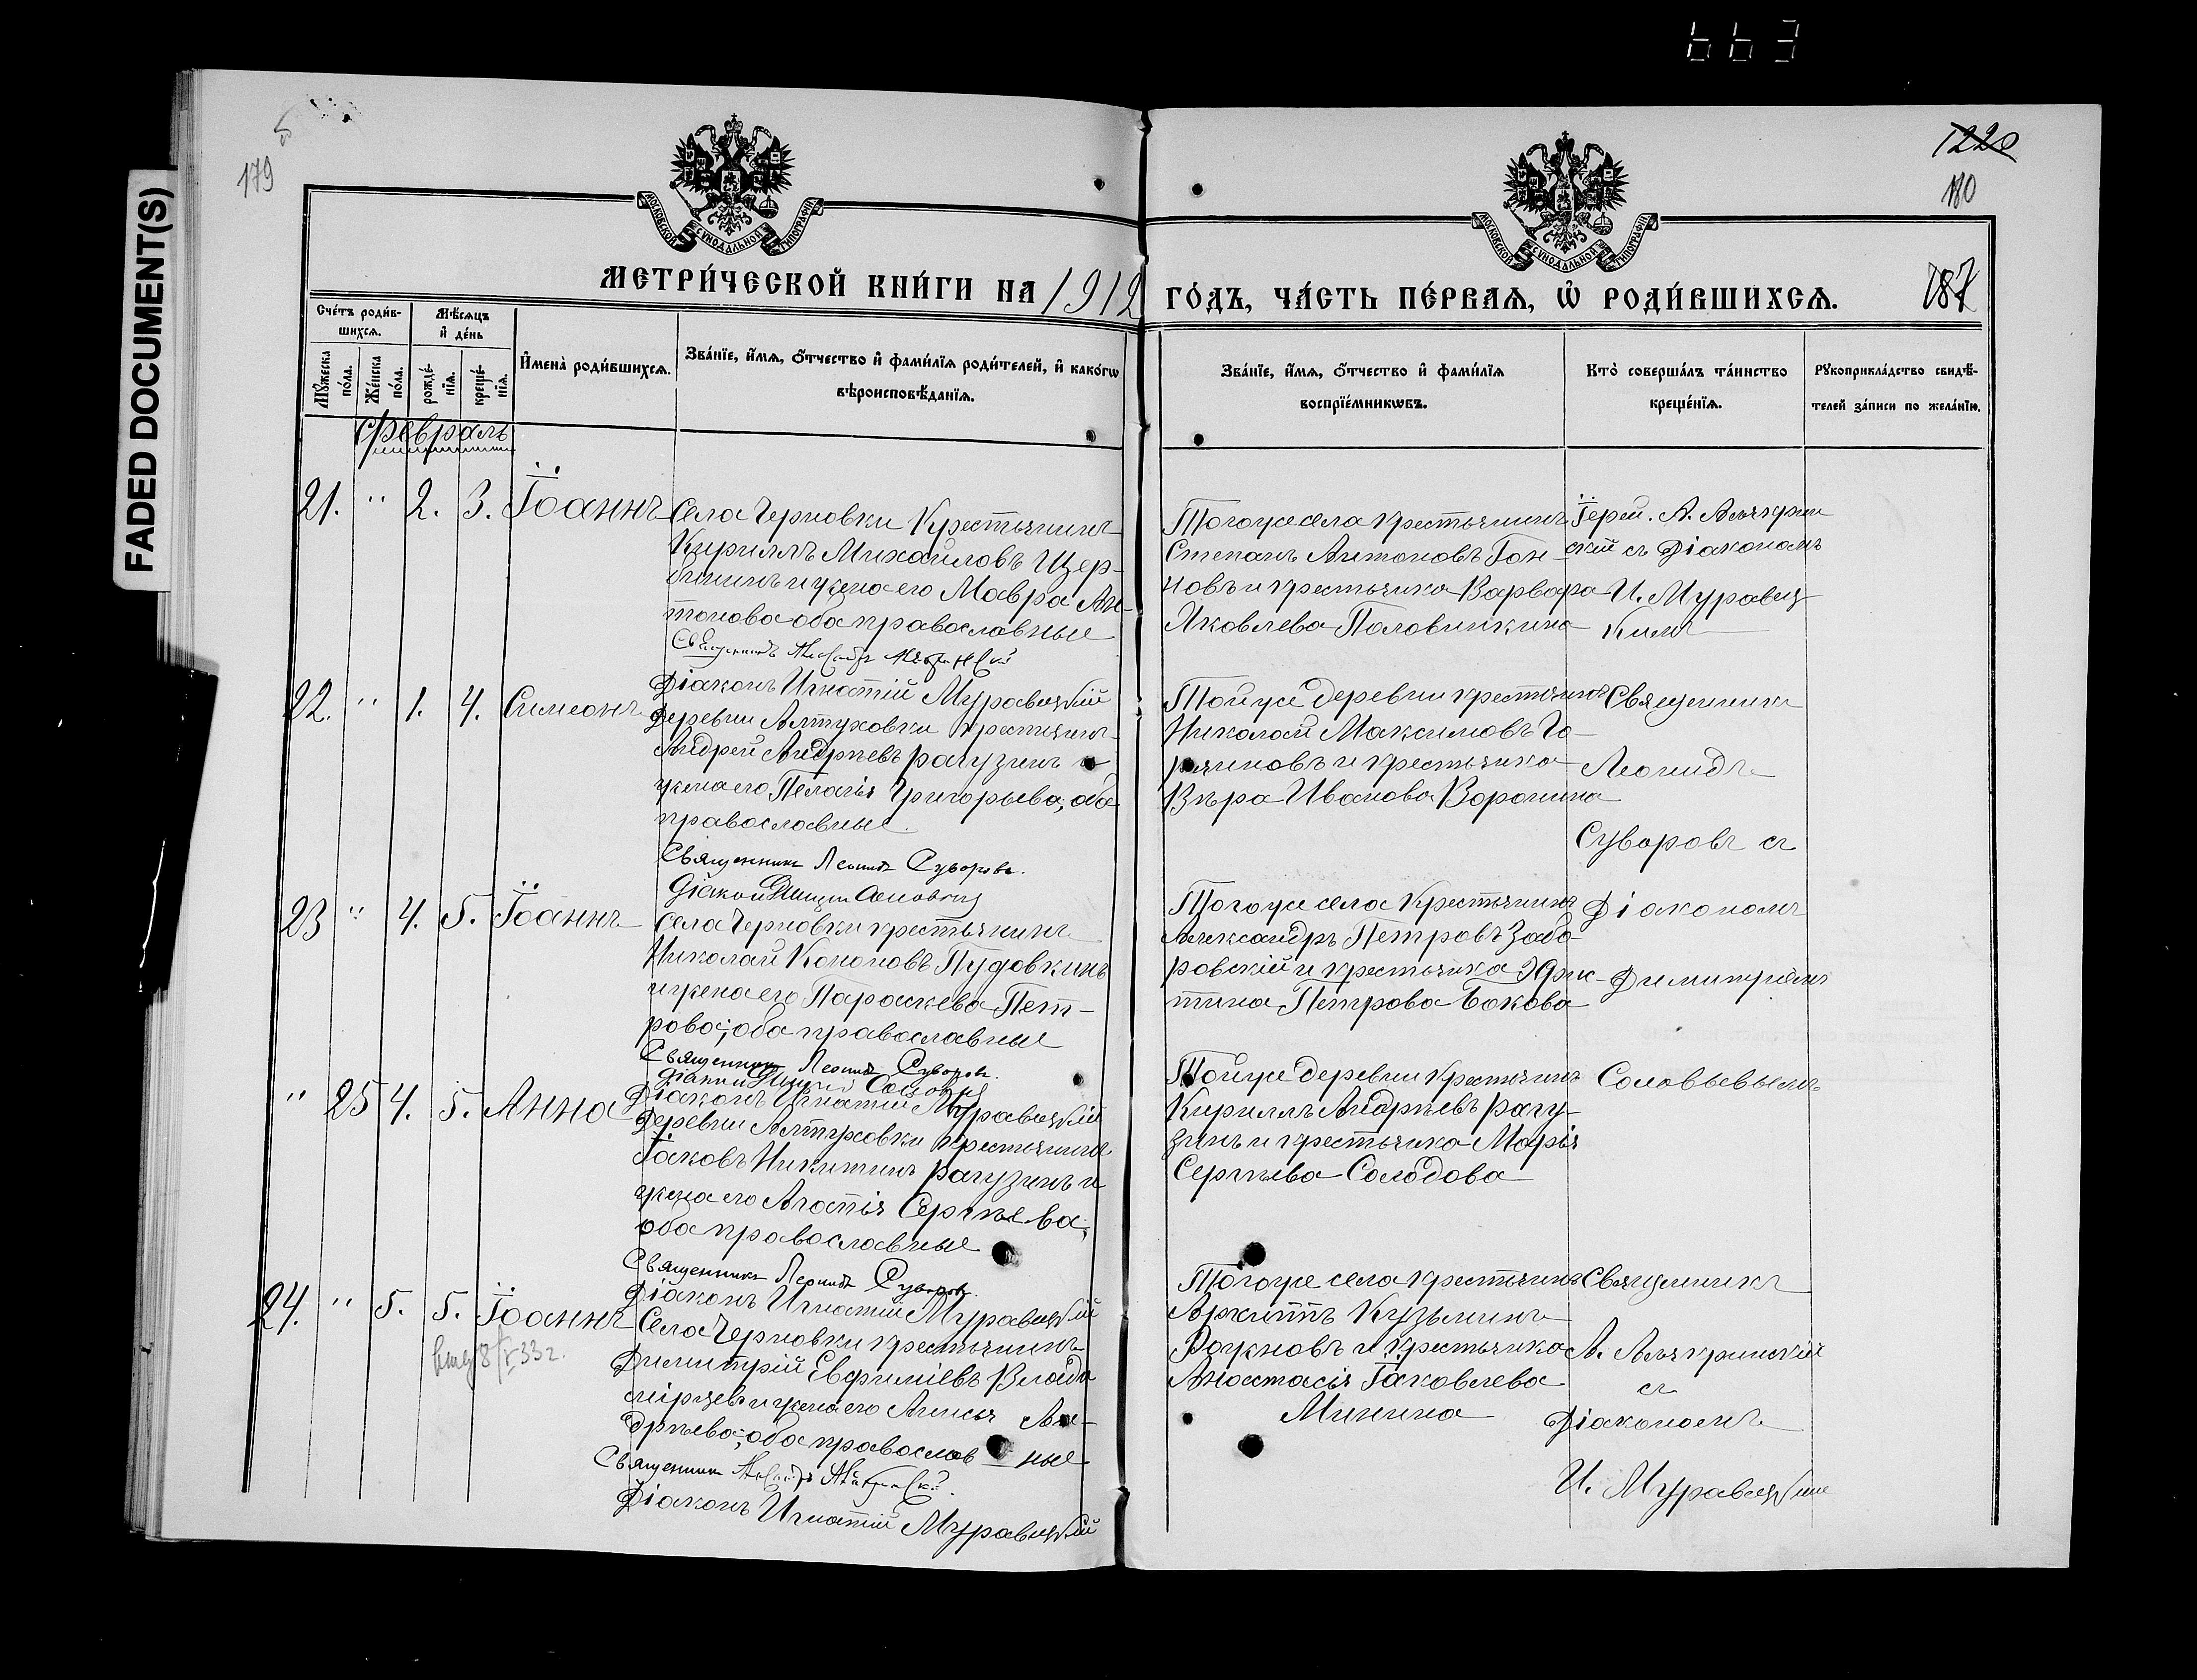 663
FADED DOCUMENT(S)
179
1220
180
187
МОСКОВСКОЙ СѴНОДАЛЬНОЙ ТИПОГРАФІИ
МОСКОВСКОЙ СѴНОДАЛЬНОЙ ТИПОГРАФІИ
МЕТРИ́ЧЕСКОЙ КНИ́ГИ НА 1912 ГО́ДЪ, ЧА́СТЬ ПЕ́РВАѦ, Ѡ҆ РОДИ́ВШИХСѦ.
Сче́тъ роди́в-
шихсѧ.
Мꙋ́жеска по́ла.
Же́нска по́ла.
Мѣ́сѧцъ
и҆ де́нь
рожде́-
нїѧ.
креще́-
нїѧ.
И҆мена̀ роди́вшихсѧ.
Зва́нїе, и҆́мѧ, ѻ҆́тчество и҆ фами́лїѧ роди́телей, и҆ како́гѡ
вѣроисповѣ́данїѧ.
Зва́нїе, и҆́мѧ, ѻ҆́тчество и҆ фами́лїѧ
воспрїе́мникѡвъ.
Кто̀ соверша́лъ та́инство
креще́нїѧ.
Рꙋкоприкла́дство свидѣ́-
телей за́писи по жела́нїю.
Февраль
21. " 2. 3. Іоаннъ
Села Черновки Крестьянинъ
Кириллъ Михаиловъ Щер-
бининъ и жена его Мавра Ан-
тонова оба православные
Священникъ
Діаконъ Игнатій Муравицкій
Тогоже села крестьянинъ
Степанъ Антоновъ Гон-
новъ и крестьянка Варвара
Яковлева Половинкина
Іерей. А.
скій съ Діакономъ
И. Муравиц
кимъ
22. " 1. 4. Симеонъ
Деревни Алтуховки крестьянинъ
Андрей Андреевъ Рагузинъ и
жена его Пелагія Григорьева, оба
православные.
Священникъ Леонидъ Суворовъ.
Діаконъ
Тойже деревни крестьянинъ
Николай Максимовъ Го-
ряиновъ и крестьянка
Вѣра Иванова Воронина
Священникъ
Леонидъ
Суворовъ съ
23 " 4. 5. Іоаннъ
Села Черновки крестьянинъ
Николай Кононовъ Пудовкинъ
и жена его Параскева Пет-
рова; оба православные
Священникъ Леонидъ Суворовъ.
Діаконъ
Діаконъ Игнатій Муравицкій
Тогоже села Крестьянинъ
Александръ Петровъ Забо-
ровскій и крестьянка
тина Петрова Бокова
Діакономъ
Димитріемъ
" 25 4. 5. Анна
Деревни Алтуховки крестьянинъ
Іаковъ Никитинъ Рагузинъ и
жена его Агапія Сергѣева;
оба православные
Священникъ Леонидъ Суворовъ.
Діаконъ Игнатій Муравицкій
Тойже деревни Крестьянинъ
Кириллъ Андреевъ Рагу-
зинъ и крестьянка Марія
Сергѣева Солодова
Соловьевымъ
24. " 5. 5. Іоаннъ
Села Черновки крестьянинъ
Димитрій Евфиміевъ Влади
мірцевъ и жена его Анисья Ан-
дреева; оба православ ные
Священникъ
Діаконъ Игнатій Муравицкій
Тогоже села крестьянинъ
Архиппъ Кузьминъ
и крестьянка
Анастасія Іаковлева
Минина
Священникъ
А.
съ
Діакономъ
И. Муравицкимъ